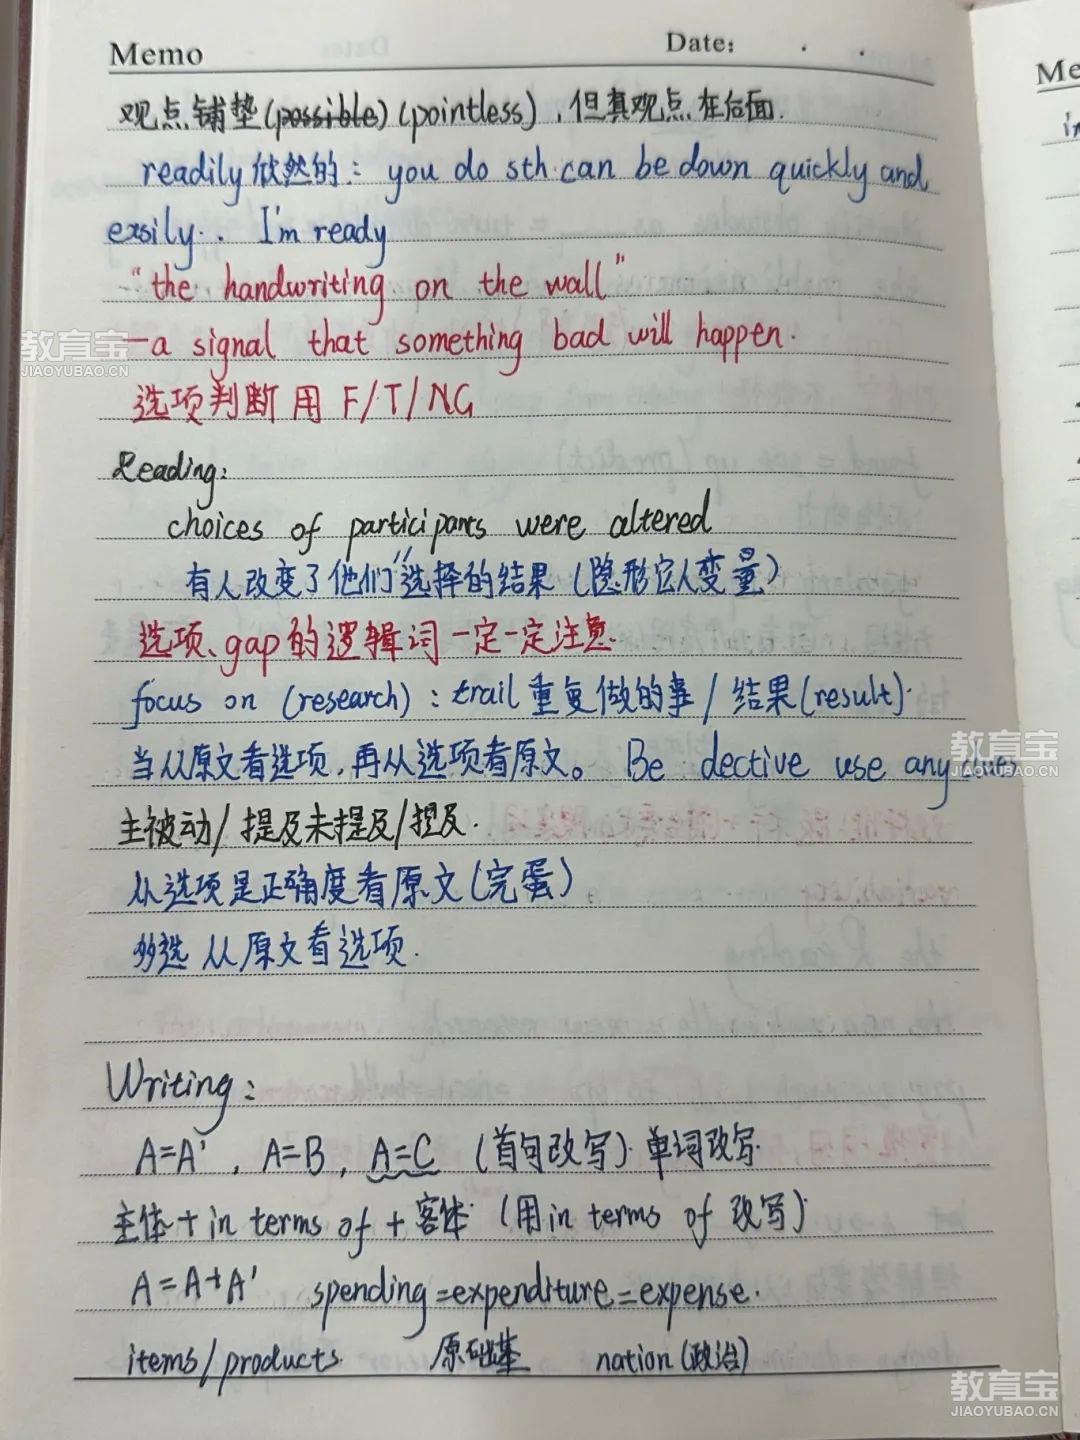 Memo Date: . .
观点铺垫(possible)(pointless),但真观点在后面.
readily 欣然的: you do sth can be down quickly and
easily.. I'm ready
"the handwriting on the wall"
—a signal that something bad will happen.
选项判断用 F/T/NG
Reading:
choices of participants were altered
有人改变了他们"选择的结果(隐形它人变量)
选项、gap的逻辑词一定一定注意.
focus on (research): trail 重复做的事/结果(result).
当从原文看选项,再从选项看原文。Be dective use any clues
主被动/提及未提及/提及.
从选项是正确度看原文(完蛋)
多选 从原文看选项.
Writing:
A=A', A=B, A=C (首句改写). 单词改写.
主体+in terms of+客体 (用in terms of 改写).
A=A+A' spending=expenditure=expense.
items/products 原础基 nation(政治)
Me
教育宝
JIAOYUBAO.CN
教育宝
JIAOYUBAO.CN
教育宝
JIAOYUBAO.CN